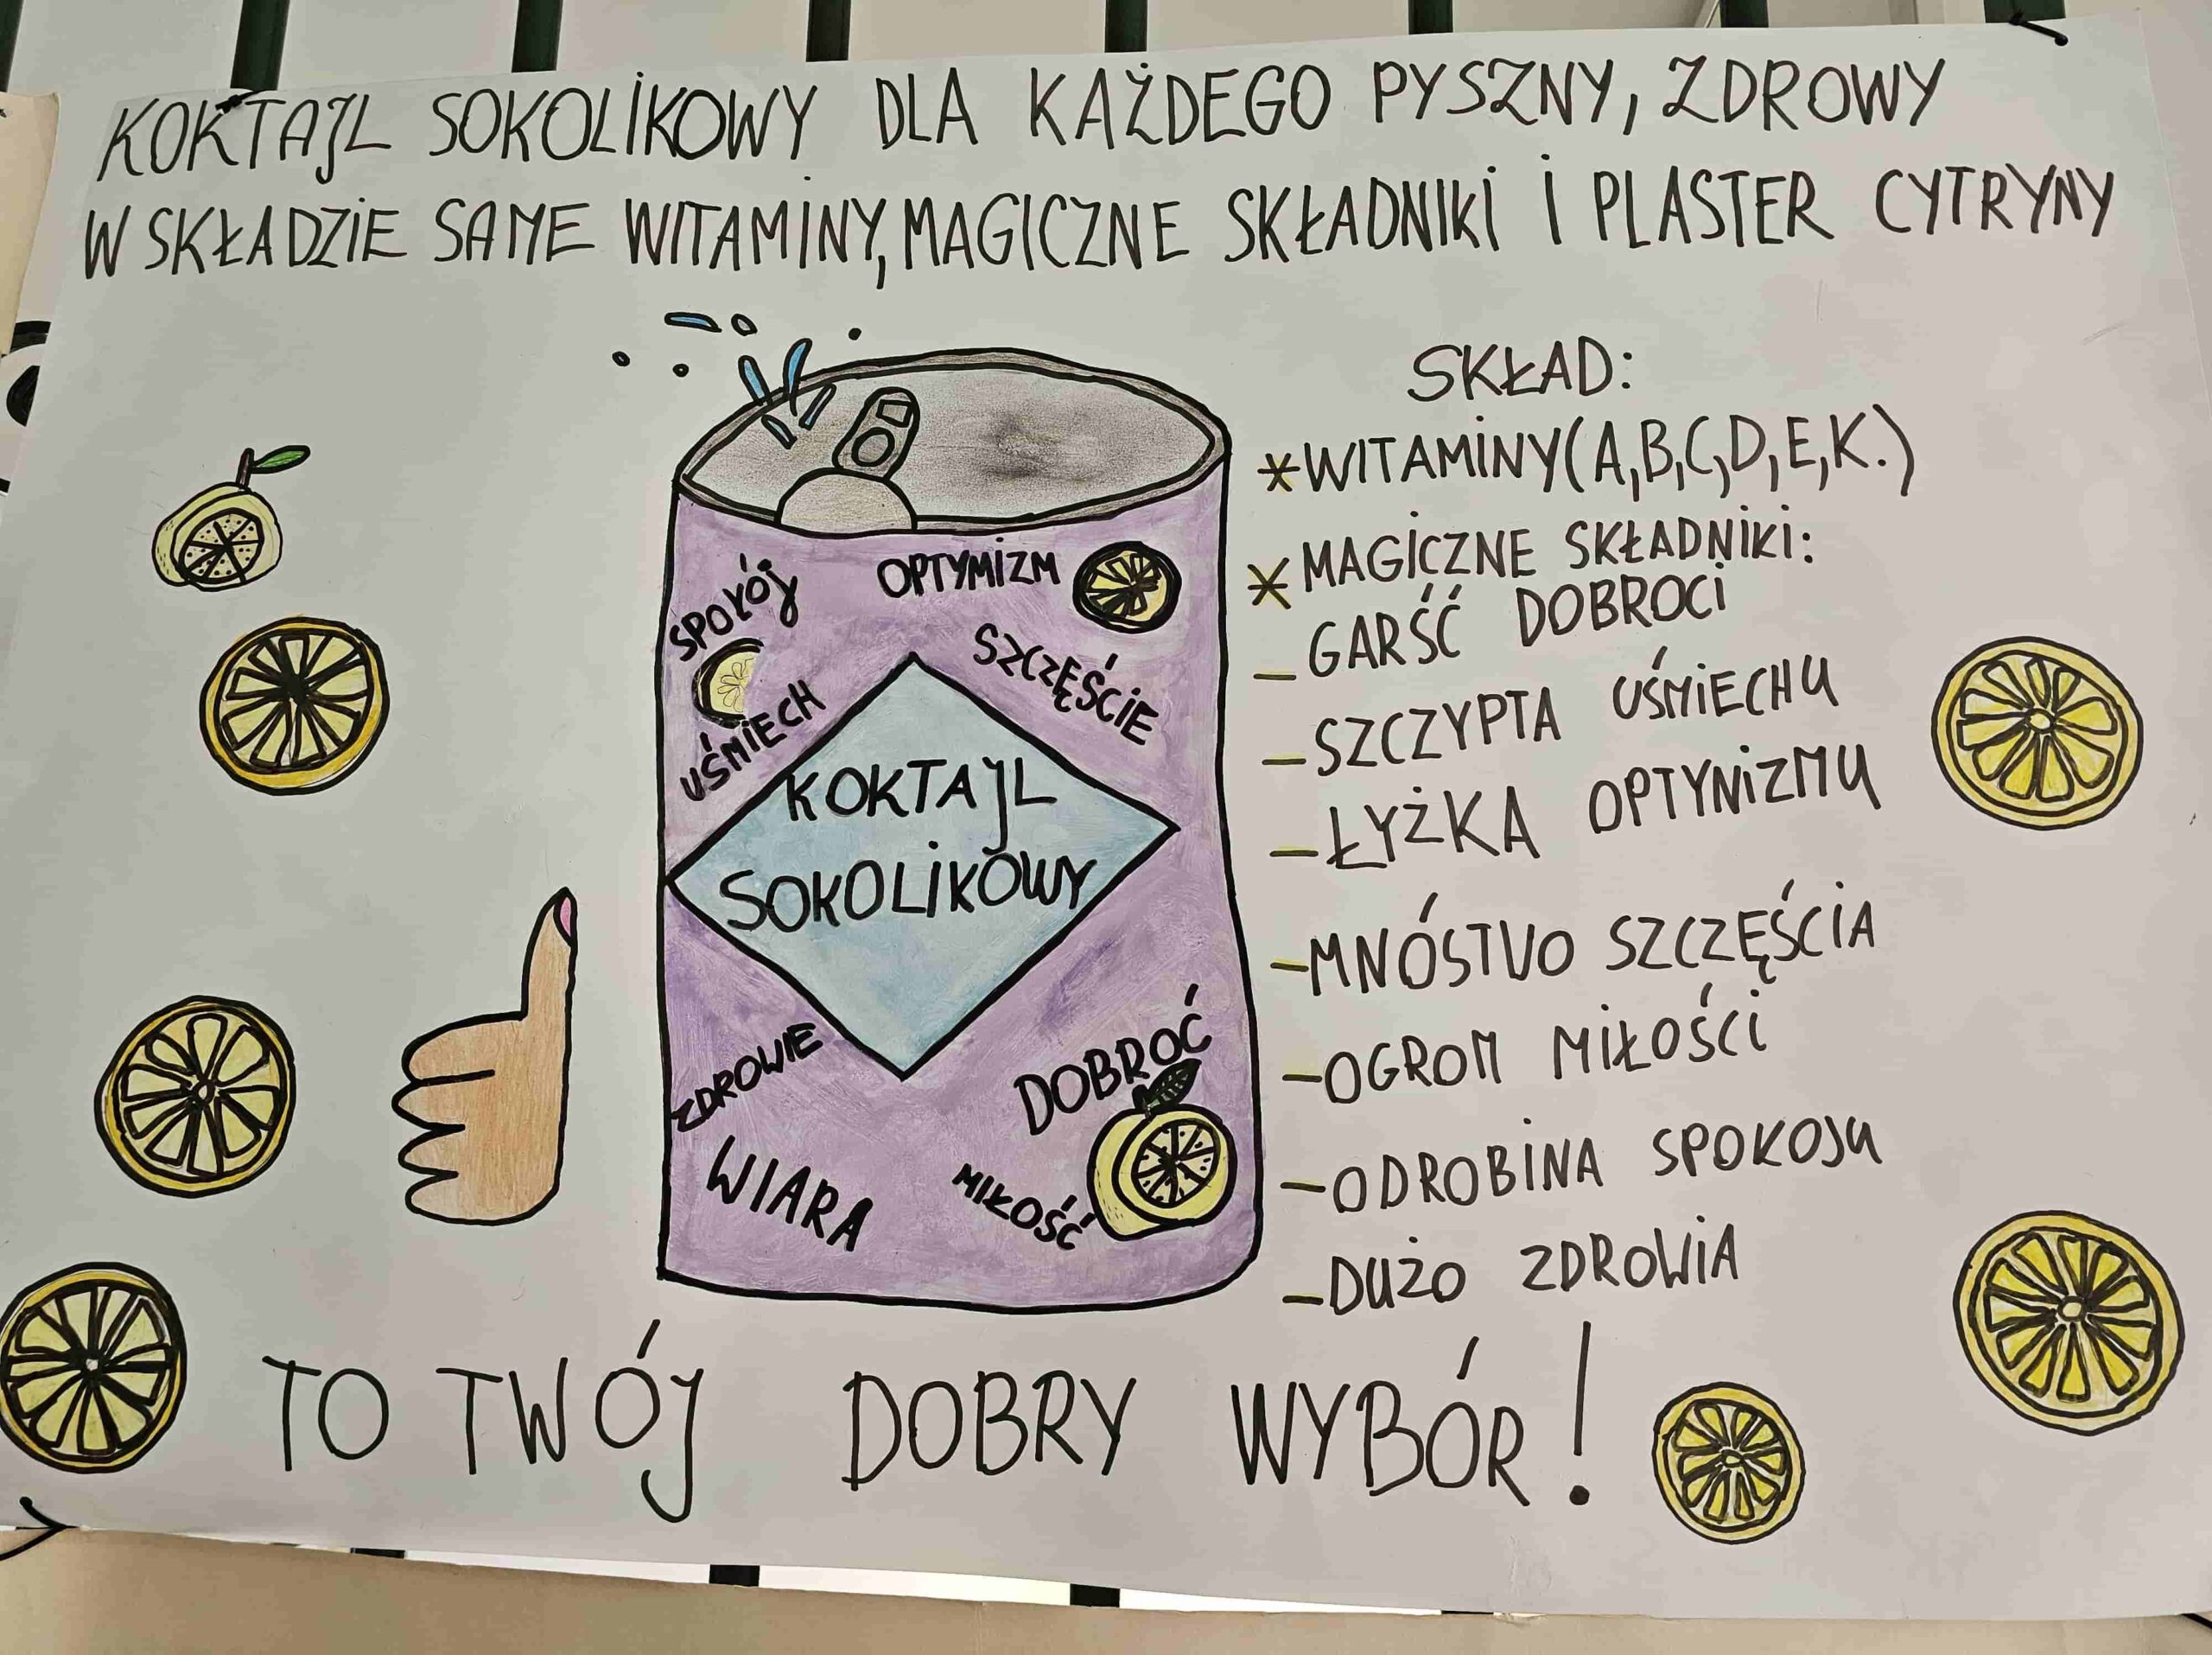 KOKTAJL SOKOLIKOWY DLA KAŻDEGO PYSZNY, ZDROWY
W SKŁADZIE SAME WITAMINY, MAGICZNE SKŁADNIKI I PLASTER CYTRYNY
SPOKÓJ
OPTYMIZM
UŚMIECH
SZCZĘŚCIE
KOKTAJL
SOKOLIKOWY
ZDROWIE
DOBROĆ
WIARA
MIŁOŚĆ
SKŁAD:
*WITAMINY(A,B,C,D,E,K.)
*MAGICZNE SKŁADNIKI:
- GARŚĆ DOBROCI
- SZCZYPTA UŚMIECHU
- ŁYŻKA OPTYNIZMU
- MNÓSTVO SZCZĘŚCIA
- OGROM MIŁOŚCI
- ODROBINA SPOKOJU
- DUŻO ZDROWIA
TO TWÓJ DOBRY WYBÓR!